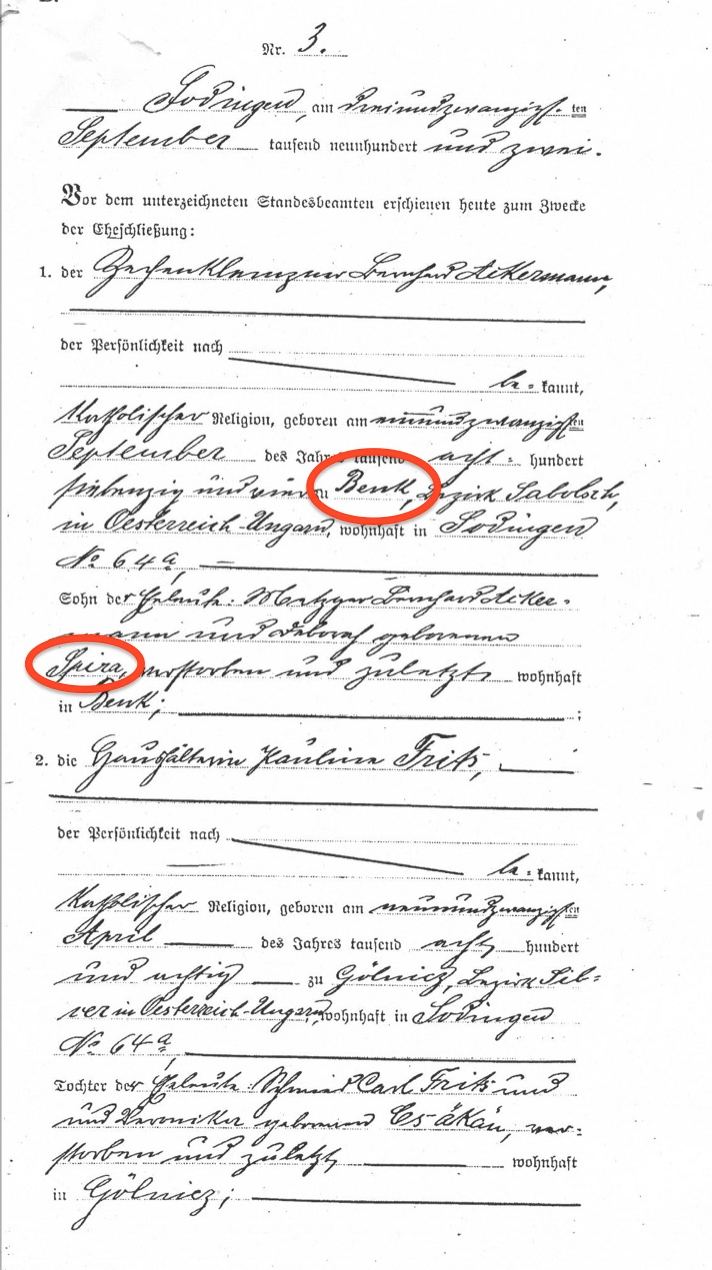 Nr. 3.
Sodingen, am dreiundzwanzigsten
September tausend neunhundert und zwei.
Vor dem unterzeichneten Standesbeamten erschienen heute zum Zwecke
der Eheschließung:
1. der Zechenklempner Bernhard Ackermann,
der Persönlichkeit nach
be=kannt,
katholischer Religion, geboren am neunundzwanzigsten
September des Jahres tausend acht=hundert
siebenzig und vier zu Benk, Bezirk Sabolsch,
in Oesterreich-Ungarn, wohnhaft in Sodingen
No 64a,
Sohn der Eheleute: Metzger Bernhard Acker-
mann und Deborah geborenen
Spira, verstorben und zuletzt wohnhaft
in Benk; ;
2. die Haushälterin Pauline Frits,
der Persönlichkeit nach
be=kannt,
katholischer Religion, geboren am neunundzwanzigsten
April des Jahres tausend acht hundert
und achtzig zu Gölnicz, Bezirk
in Oesterreich-Ungarn, wohnhaft in Sodingen
No 64a,
Tochter der Eheleute: Schmied Carl Frits und
und Veronika geborene Csäkäu, ver=
storben und zuletzt wohnhaft
in Gölnicz;